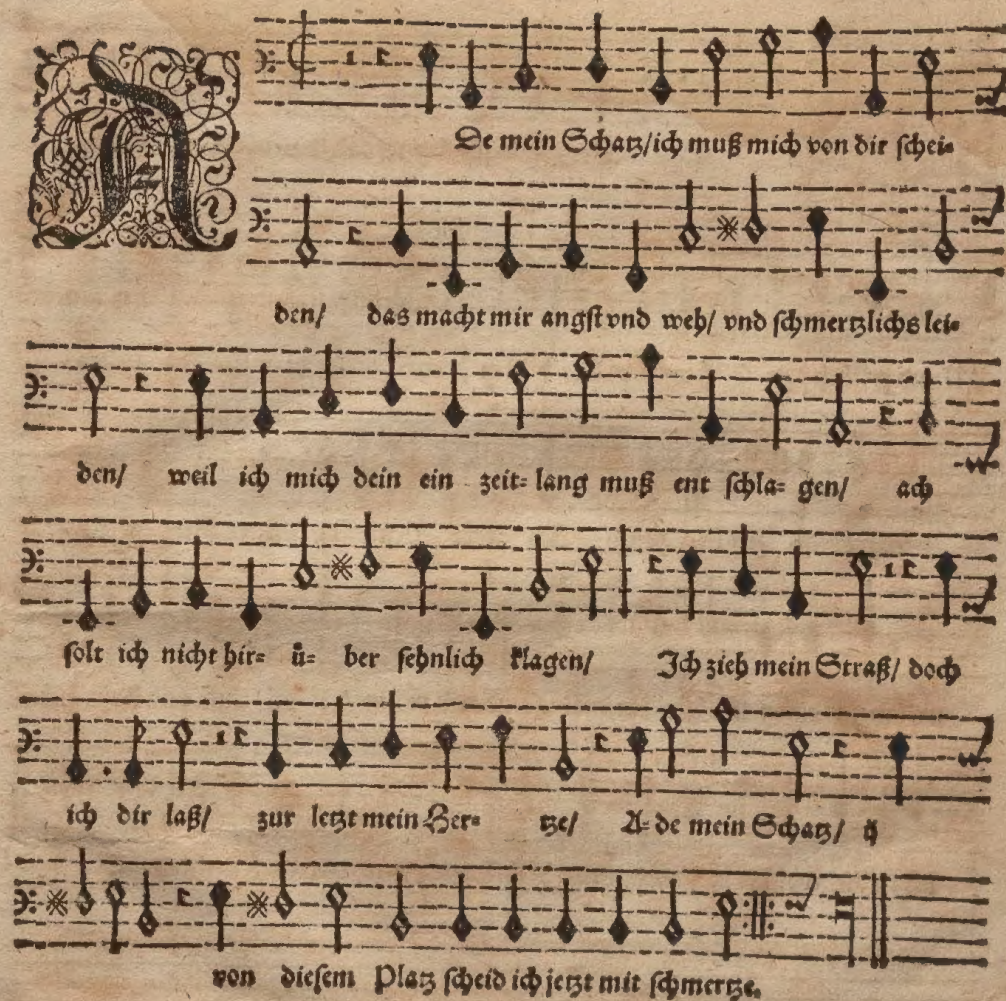 ADe mein Schatz/ich muß mich von dir schei-
den/ das macht mir angst vnd weh/ vnd schmertzlichs lei-
den/ weil ich mich dein ein zeit-lang muß ent schla-gen/ ach
solt ich nicht hir-ü-ber sehnlich klagen/ Ich zieh mein Straß/ doch
ich dir laß/ zur letzt mein Her-tze/ A-de mein Schatz/
von diesem Platz scheid ich jetzt mit schmertze.